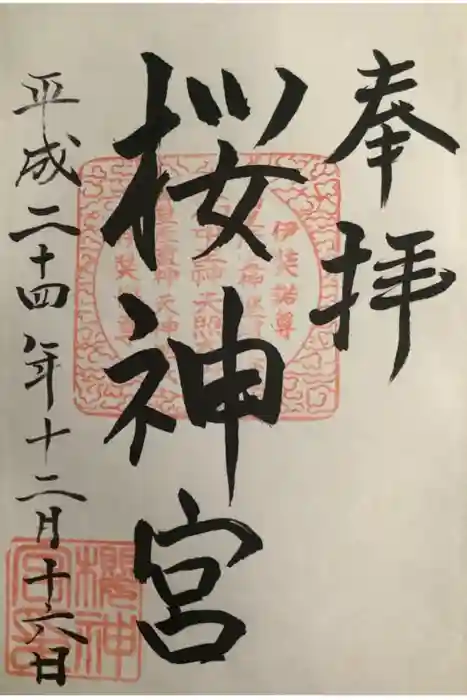 奉拝
桜神宮
平成二十四年十二月十六日
伊弉諾尊
櫻神